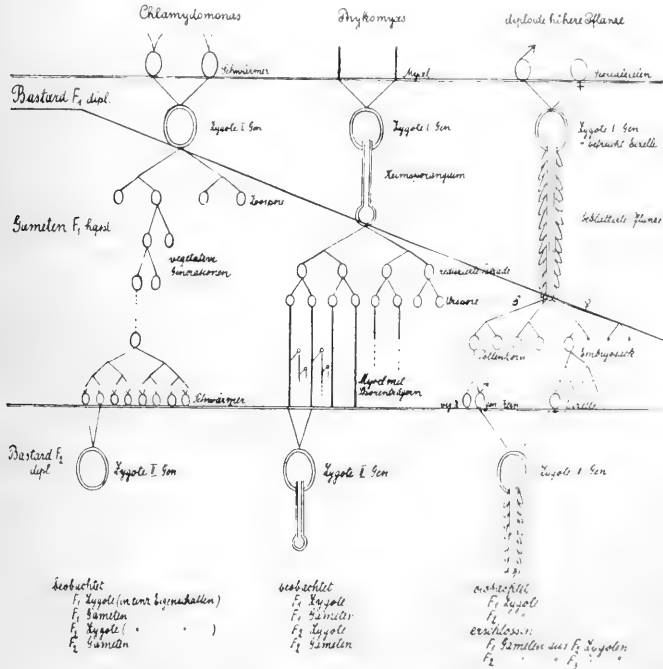 Chlamydomonas
Phykomyxes
diploide höhere Pflanze
Schwärmer
Myzel
Bastard F₁ dipl.
Zygote I Gen
Zygote I Gen
Zygote I Gen
= befrucht Eizelle
Keimsporangium
Zoospore
beblätterte Pflanze
Gameten F₁ hapl
vegetative
Generationen
reduzierte
♂
♀
Pollenkorn
Embryosack
Myzel mit
Schwärmer
veg. Z
gen. Kern
Eizelle
Bastard F₂
dipl.
Zygote II Gen
Zygote II Gen
Zygote II Gen
beobachtet
F₁ Zygote (in ihr Eigenschaften)
F₁ Gameten
F₂ Zygote ( " " )
F₂ Gameten
beobachtet
F₁ Zygote
F₁ Gameten
F₂ Zygote
F₂ Gameten
beobachtet
F₁ Zygote
F₂ "
erschlossen:
F₁ Gameten aus F₂ Zygoten
F₂ " " F₃ "